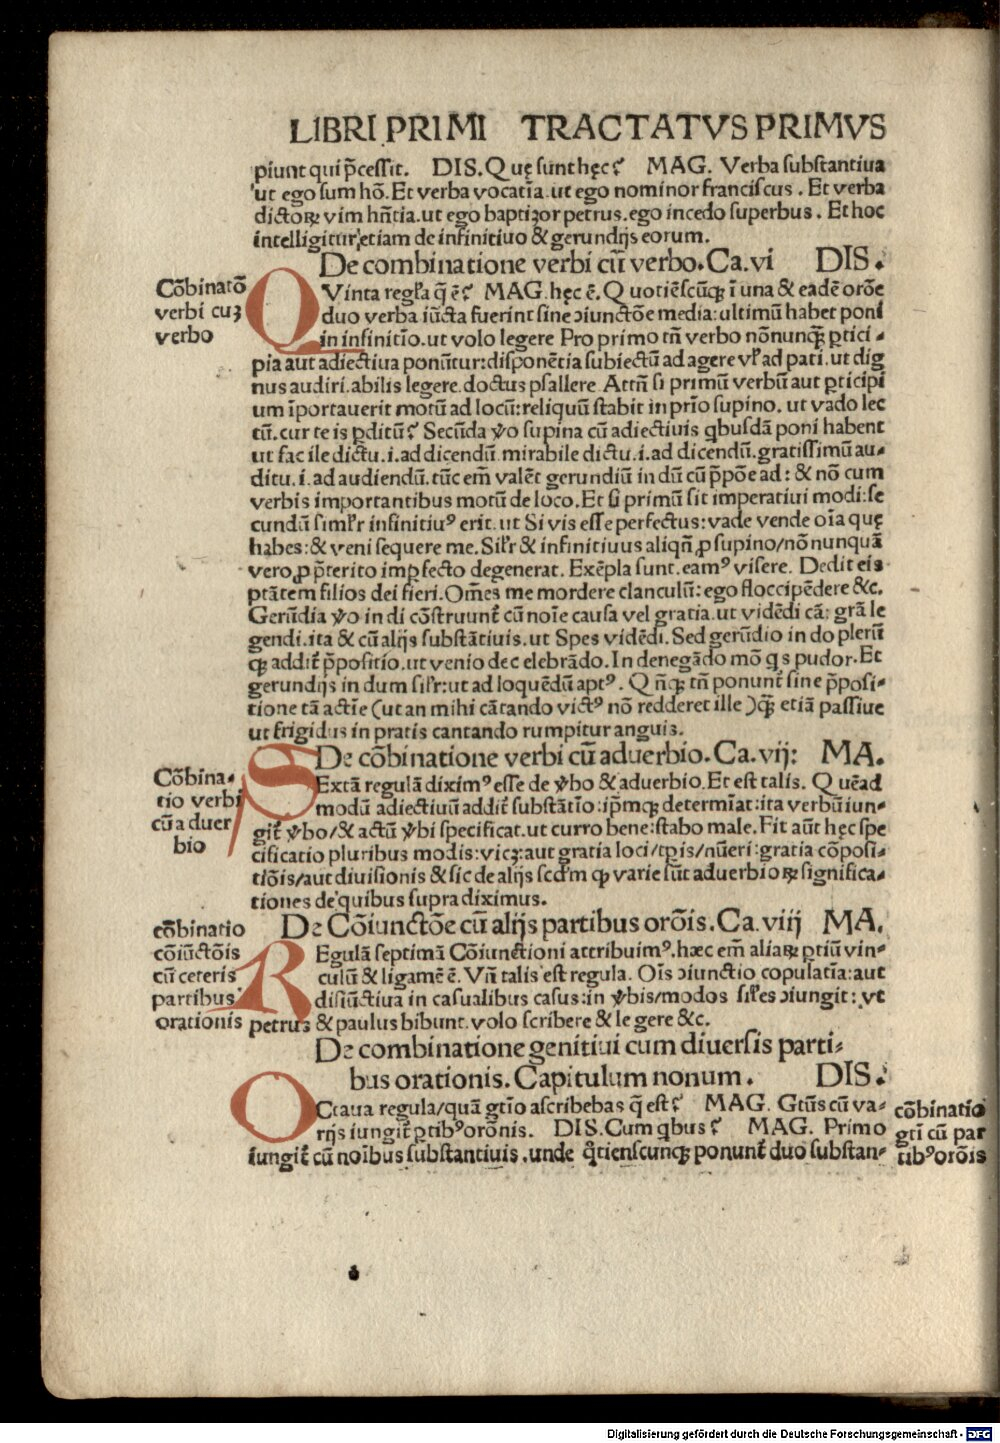 LIBRI PRIMI TRACTATVS PRIMVS
piunt qui p̄cessit. DIS. Quę sunt hęc? MAG. Verba substantiua
ut ego sum hō. Et verba vocatīa. ut ego nominor franciscus. Et verba
dictoꝝ vim hn̄tia. ut ego baptizor petrus. ego incedo superbus. Et hoc
intelligitur, etiam de infinitiuo & gerundijs eorum.
De combinatione verbi cū verbo. Ca. vi DIS.
Cōbinatō
verbi cuꝫ
verbo
QVinta regl̄a q̄ ē? MAG. hęc ē. Quotiēscūqꝫ ī una & eadē orōe
duo verba iūcta fuerint sine ↄiunctōe media: ultimū habet poni
in infinitīo. ut volo legere Pro primo tn̄ verbo nōnunqꝫ̄ ꝑtici-
pia aut adiectiua ponūtur: disponētia subiectū ad agere vl̄ ad pati. ut dig
nus audiri. abilis legere. doctus psallere. Attn̄ si primū verbū aut ꝑticipi
um īportauerit motū ad locū: reliquū stabit in prīo supino. ut vado lec
tū. cur te is ꝑditū? Secūda ꝟo supina cū adiectiuis qbusdā poni habent
ut facile dictu. i. ad dicendū. mirabile dictu. i. ad dicendū. gratissimū au-
ditu. i. ad audiendū. tūc em̄ valēt gerundiū in dū cū p̄pōe ad: & nō cum
verbis importantibus motū de loco. Et si primū sit imperatiui modi: se
cundū siml̄r infinitiuꝰ erit. ut Si vis esse perfectus: vade vende oīa quę
habes: & veni sequere me. Sil̄r & infinitiuus aliqn̄ ꝓ supino/ nō nunquā
vero ꝓ p̄terito imꝑfecto degenerat. Exēpla sunt. eamꝰ visere. Dedit eis
ptātem filios dei fieri. Om̄es me mordere clanculū: ego floccipēdere &c.
Gerūdia ꝟo in di cōstruunt̄ cū noīe causa vel gratia. ut vidēdi cā: grā le
gendi. ita & cū alijs substātiuis. ut Spes vidēdi. Sed gerūdio in do plerū
qꝫ addit̄ p̄positio. ut venio de celebrādo. In denegādo mō qs pudor. Et
gerundijs in dum sil̄r: ut ad loquēdū aptꝰ. Qn̄qꝫ tn̄ ponunt̄ sine p̄posi-
tione tā actīe (ut an mihi cātando victꝰ nō redderet ille) qꝫ̄ etiā passiue
ut frigidus in pratis cantando rumpitur anguis.
De cōbinatione verbi cū aduerbio. Ca. vij: MA.
Cōbina-
tio verbi
cū aduer
bio
SExtā regulā diximꝰ esse de ꝟbo & aduerbio. Et est talis. Quēad
modū adiectiuū addit̄ substātīo: ip̄mqꝫ determīat: ita verbū iun-
git̄ ꝟbo/ & actū ꝟbi specificat. ut curro bene: stabo male. Fit aūt hęc spe
cificatio pluribus modis: vicꝫ: aut gratia loci/ tp̄is/ nūeri: gratia cōposi-
tiōis/ aut diuisionis & sic de alijs scd̄m qp varie sūt aduerbioꝝ significa-
tiones de quibus supra diximus.
De Cōiunctōe cū alijs partibus orōis. Ca. viij MA.
cōbinatio
cōiūctōis
cū ceteris
partibus
orationis
REgulā septimā Cōiunctioni attribuimꝰ. hæc em̄ aliaꝝ ꝑtiū vin-
culū & ligamē ē. Vn̄ talis est regula. Oīs ↄiunctio copulatīa: aut
disiūctiua in casualibus casus: in ꝟbis/ modos sil̄es ↄiungit: vt
petrus & paulus bibunt. volo scribere & legere &c.
De combinatione genitiui cum diuersis parti-
bus orationis. Capitulum nonum. DIS.
OCtaua regula/ quā gtīo ascribebas q̄ est? MAG. Gtūs cū va-
rijs iungit̄ ꝑtibꝰ orōnis. DIS. Cum qbus? MAG. Primo
iungit̄ cū noībus substantiuis. unde qtienscunqꝫ ponunt̄ duo substan-
cōbinatio
gtī cū par
tibꝰ orōis
Digitalisierung gefördert durch die Deutsche Forschungsgemeinschaft - DFG